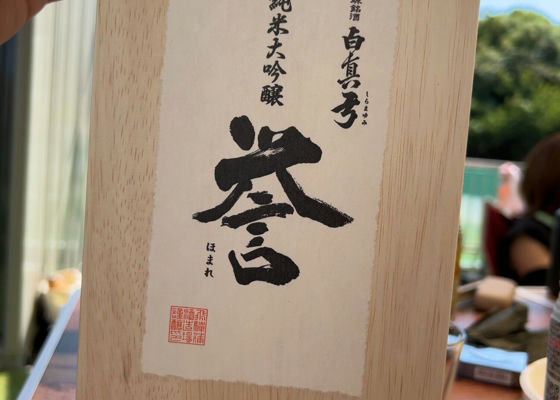 銘酒
白真弓
しらまゆみ
純米大吟醸
誉
ほまれ